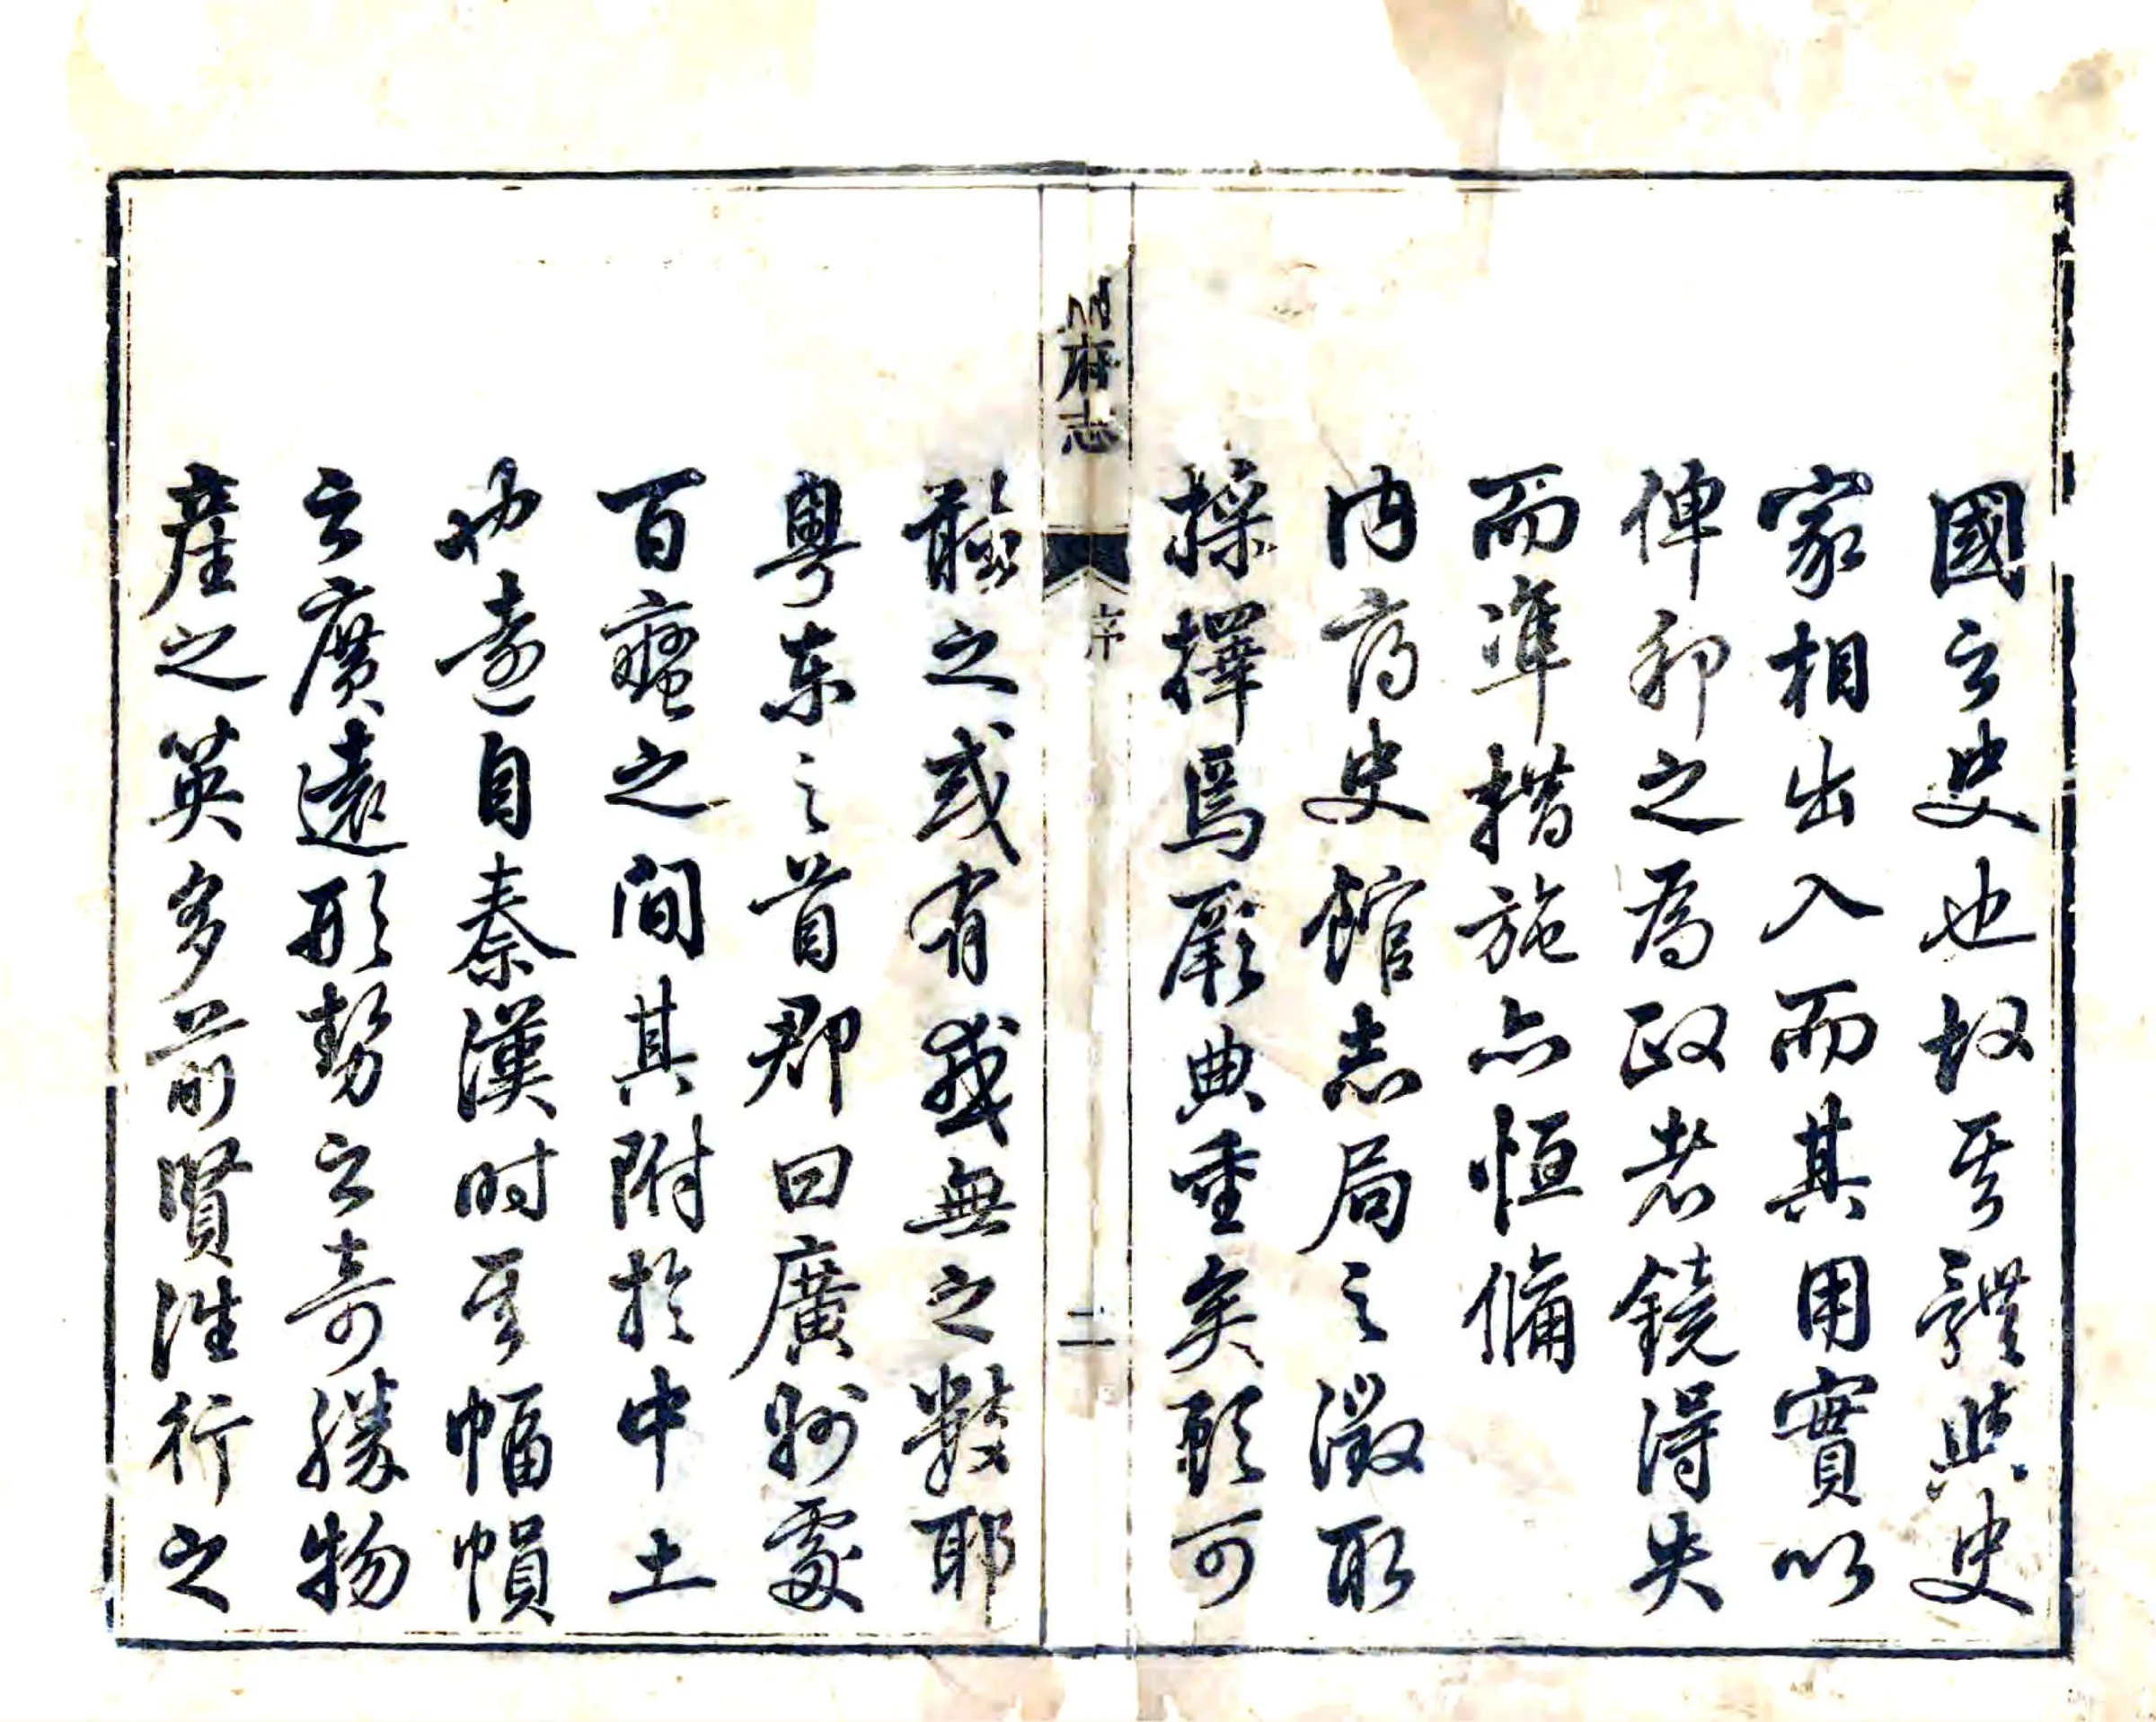 國之史也故其體與史
家相出入而其用實以
俾邦之為政者鏡得失
而準措施亦恒備
內府史館志局之徵取
採擇焉厥典重矣顧可
州府志 序 二
聽之或有或無之數耶
粵東之首郡曰廣州處
百蠻之間其附於中土
也遠自秦漢時其幅幀
之廣遠形勢之奇勝物
產之英多前賢往行之